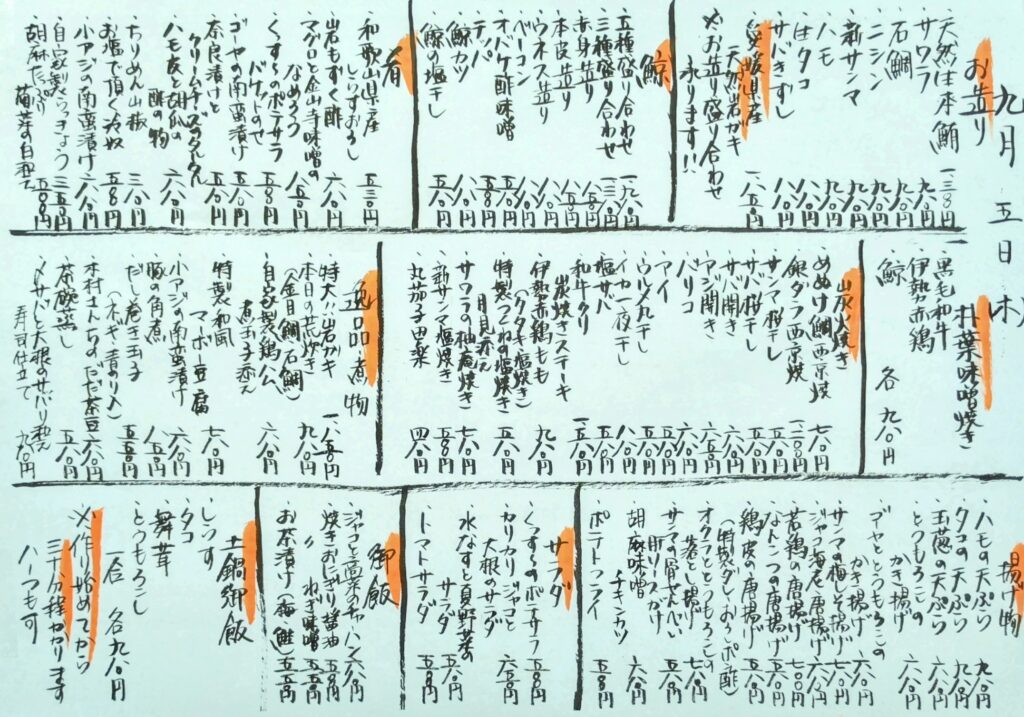 九月 五日 木
お造り
・天然生本鮪 一、三八〇円
・サワラ 九八〇円
・石鯛 九八〇円
・ニシン 九八〇円
・新サンマ 九八〇円
・ハモ
・生タコ
・サバきずし
・愛媛県産
天然岩ガキ
※お造り盛り合わせ
承ります!!
鯨
・五種盛り合わせ
・三種盛り合わせ
・赤身造り
・本皮造り
・ウネス造り
・オバケ酢味噌
・ベーコン
・テッパ
・鯨カツ
・鯨の塩干し
肴
・和歌山県産
しらすおろし 五三〇円
・岩もずく酢 六八〇円
・マグロと金山寺味噌の
なめろう 八五〇円
・くずし〜のポテサラ
バゲットのせ 五八〇円
・ゴーヤの南蛮漬け 六八〇円
・奈良漬けと
クリームチーズのタルタル
・ハモ皮と胡瓜の
酢の物 六八〇円
・ちりめん山椒 三八〇円
・お塩で頂く冷奴 五八〇円
・小アジの南蛮漬け 六八〇円
・自家製らっきょう 三五〇円
・胡麻たっぷり
菊菜の白和え 五八〇円
朴葉味噌焼き
・黒毛和牛
・伊勢赤鶏
・鯨
各 九八〇円
炭火焼き
・めぬけ鯛西京焼 七八〇円
・銀ダラ西京焼
・サンマ桜干し
・サバ桜干し
・サバ開き
・アジ開き
・バリコ
・アイ
・ウルメ丸干し
・イカ一夜干し
・塩サバ
・和牛クリ
炭焼きステーキ
・伊勢赤鶏もも
(タタキ・塩焼き) 九八〇円
・特製つくね塩焼き
月見添え 五八〇円
・サワラの柚庵焼き 七八〇円
・新サンマ塩焼き 五八〇円
・丸茄子田楽 四八〇円
逸品煮物
・特大!!岩ガキ 一、八五〇円
・本日の荒炊き
(金目鯛・石鯛) 九八〇円
・自家製鶏ハム
煮玉子添え 六八〇円
・特製和風
マーボー豆腐 七八〇円
・小アジの南蛮漬け 六八〇円
・豚の角煮 八五〇円
・だし巻き玉子
(ネギ・青のり入) 五五〇円
・木村さんちのだだ茶豆 六八〇円
・茶碗蒸し 五八〇円
・〆サバと大根のサバリ和え
寿司仕立て 九八〇円
揚げ物
・ハモの天ぷら 九八〇円
・タコの天ぷら 九八〇円
・玉葱の天ぷら 六八〇円
・とうもろこしの
かき揚げ 六八〇円
・ゴーヤととうもろこしの
かき揚げ 六八〇円
・サンマの梅しそ揚げ 七八〇円
・ジャコ海老唐揚げ 六八〇円
・若鶏の唐揚げ
・なんこつの唐揚げ 五八〇円
・鶏皮の唐揚げ
(特製ダレ・おろしポン酢)
・オクラととうもろこしの
落とし揚げ 七八〇円
・サンマの骨せんべい
・肝ソースがけ
胡麻味噌
チキンカツ 六八〇円
・ポテトフライ 五五〇円
サラダ
・くずし〜のポテサラ 五八〇円
・カリカリジャコと
大根のサラダ 六八〇円
・水なすと夏野菜の
サラダ 五八〇円
・トマトサラダ 五八〇円
御飯
・ジャコと高菜のチャーハン 六八〇円
・焼きおにぎり 醤油 五五〇円
・〃 ねぎ味噌 五五〇円
・お茶漬け(梅・鮭) 五五〇円
土鍋御飯
・しらす
・タコ
・舞茸
・とうもろこし
一合 各九八〇円
※作り始めてから
三十分程かかります
ハーフも可